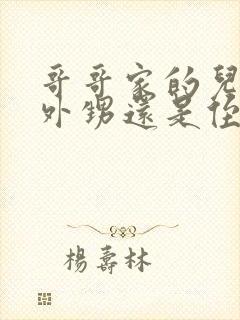 哥哥家的兒
外甥還是侄
楊壽林